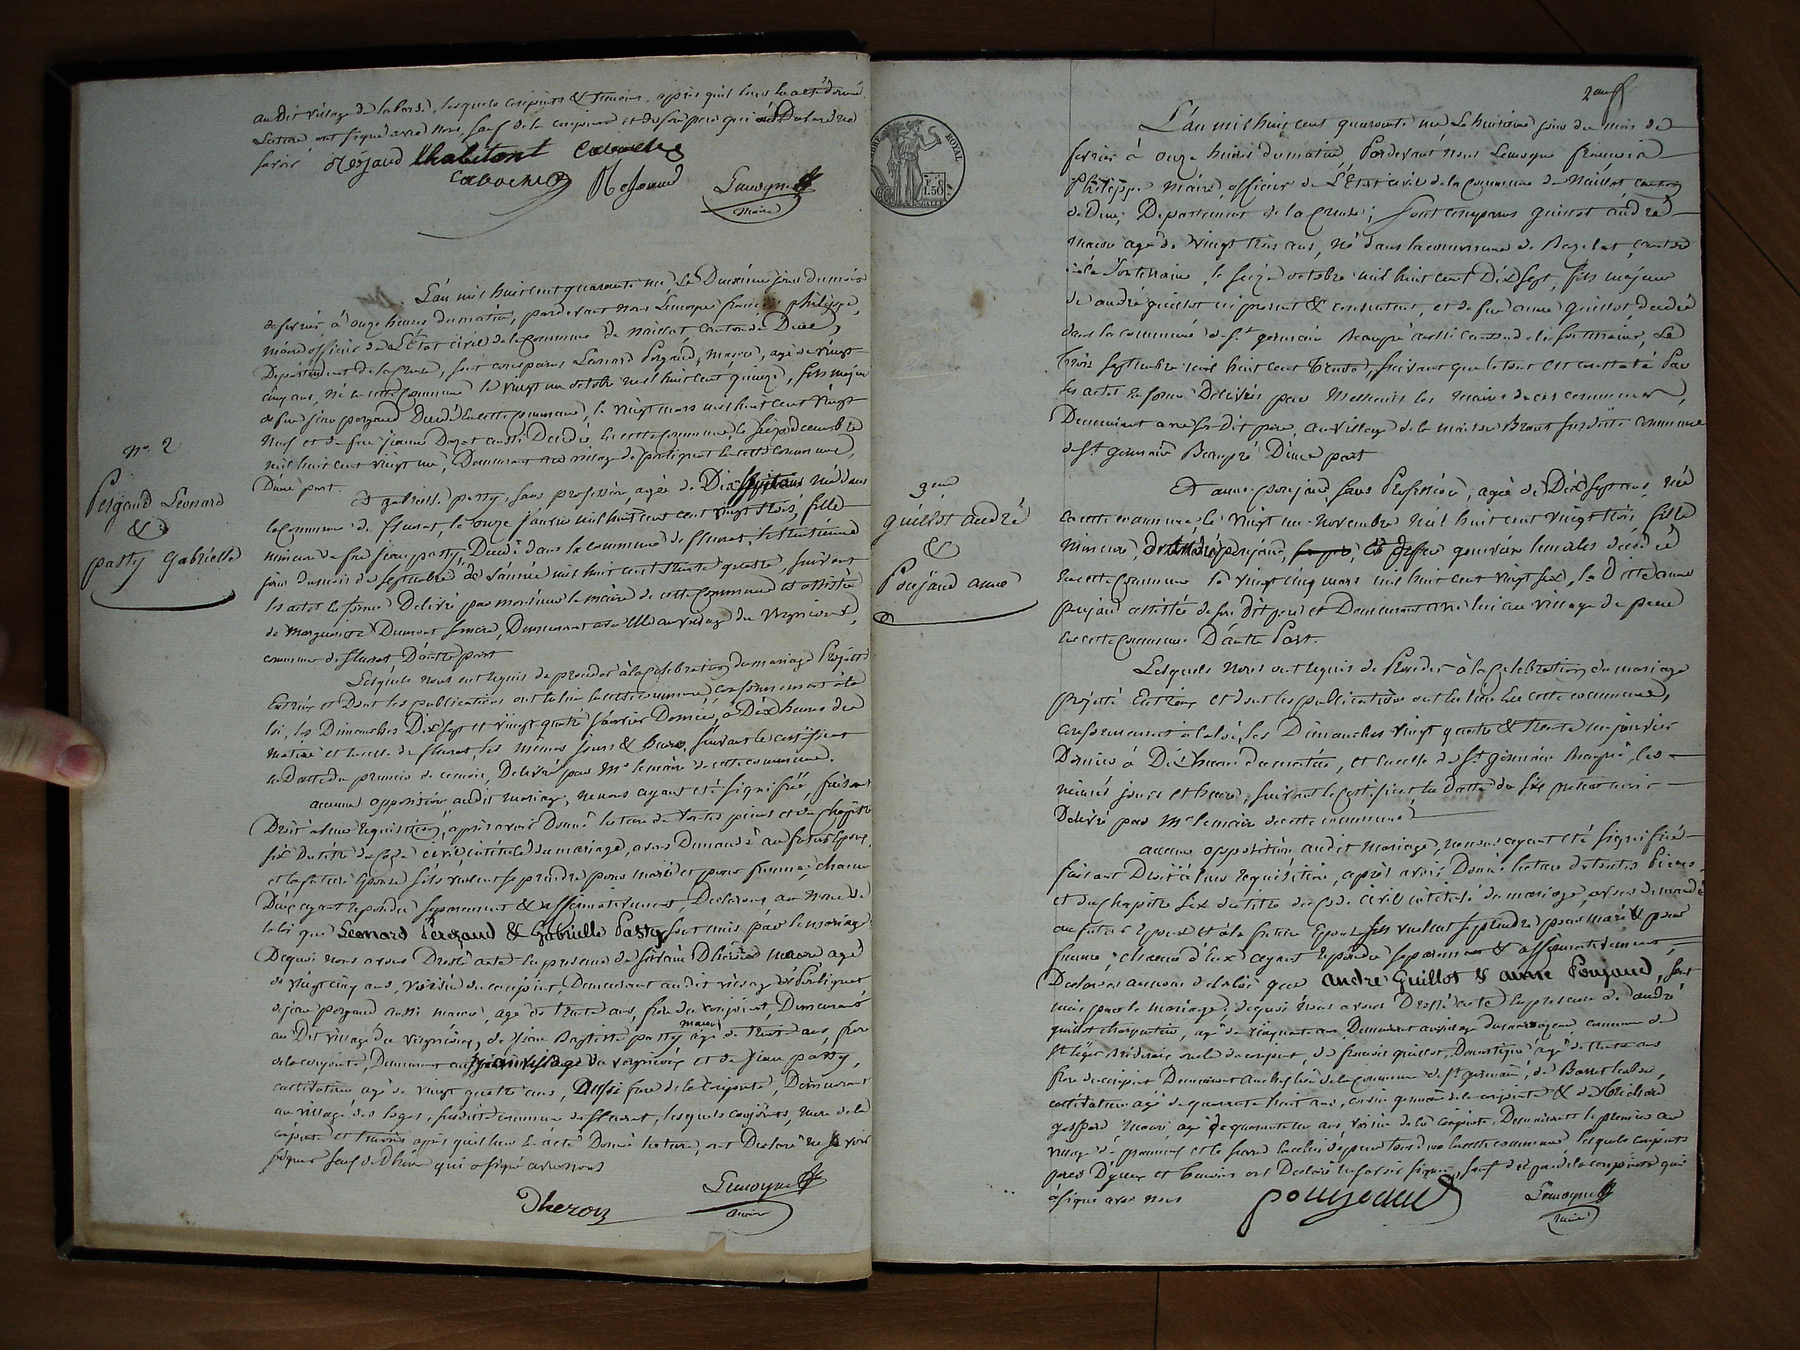 au dit village de labarde, lesquels conjoints & témoins, après qu'il leur en a été donné
lecture ont signé avec nous, sauf de la conjointe et du son père qui ont Déclaré ne
savoir
Lhabitant
Lemoyne
Maire
L'an mil huit cent quarante un, Le Deuxième jour du mois
de février, à onze heures du matin, pardevant nous Lemoyne françois philippe,
maire officier de L'Etat civil de la Commune de naillat, canton de Dun,
Département de la Creuse, sont comparus Léonard Pergaud, maçon, agé de vingt
cinq ans, né en cette Commune le vingt un octobre mil huit cent quinze, fils majeur
de feu jean pergaud Décédé en cette Commune, le vingt mars mil huit cent vingt
neuf et de feue jeanne aussi Décédée en cette Commune, le seize décembre
mil huit cent vingt un, Demeurant au village de en cette Commune,
D'une part.
Et gabrielle pasty, sans profession, agée de Dix sept ans née dans
la Commune de fleurat, le onze janvier mil huit cent vingt trois, fille
mineure de feu jean pasty, Décédé dans la commune de fleurat, le trentième
jour du mois de septembre de l'année mil huit cent trente quatre, suivant
les actes en forme Délivré par monsieur le maire de cette Commune et assistée
de Marguerite Dumont sa mère, Demeurant avec Elle au village du
commune de fleurat D'autre part
Lesquels nous ont requis de procéder à la célébration du mariage Projetté
Entr'eux et Dont les publications ont eu lieu en cette commune, conformément à la
loi, les Dimanches Dix sept et vingt quatre janvier Dernier, à Dix heures du
matin et en celle de fleurat, les mêmes jours & heure, suivant le certificat
en Datte du premier de ce mois, Délivré par Mr le maire de cette commune.
aucune opposition au dit mariage, ne nous ayant été signifiée, faisant
Droit à leur requisition, après avoir Donné lecture de toutes pièces et du chapitre
six du titre du Code civil intitulé du mariage, avons Demandé au futur Epoux,
et la future Epouse s'ils veulent se prendre pour mari et pour femme; chacun
D'eux ayant répondu séparément & affirmativement Déclarons au nom de
la loi que Léonard Pergaud & Gabrielle Pasty sont unis par le mariage
De quoi nous avons Dressé acte en présence de Dhéron maçon agé
de vingt cinq ans, voisin du conjoint, Demeurant au dit village de
de jean pergaud aussi maçon, agé de trente ans, frère du conjoint, Demeurant
au Dit village du de jean Baptiste pasty maçon agé de trente ans, frère
de la conjointe, Demeurant au village du et de jean pasty,
cultivateur agé de vingt quatre ans, aussi frère de la conjointe, Demeurant
au village des loges, susdite commune de fleurat, lesquels conjoints, mère de la
conjointe et témoins après qu'il leur en a été Donné lecture, ont Déclaré ne savoir
signer sauf Dhéron qui a signé avec nous
Dheron
Lemoyne
Maire
no. 2
Pergaud Léonard
&
pasty Gabrielle
ROYAL
1.50
L'an mil huit cent quarante un Le huitième jour du mois de
février à onze heures du matin, Pardevant nous Lemoyne françois
Philippe maire officier de L'Etat civil de la Commune de Naillat canton
de Dun, Département de la Creuse; sont comparus guillot andré
maçon agé de vingt trois ans, né dans la commune de Bazelat, canton
de la Souterraine, le seize octobre mil huit cent Dix sept, fils majeur
de andré guillot ici présent & consentant, et de feue anne guillot, décédée
dans la commune de St germain Beaupré aussi canton de la Souterraine, Le
trois septembre mil huit cent trente, suivant que le tout est constaté Par
les actes en forme Délivrés par Messieurs les maires de ces communes,
Demeurant avec son dit père, au village de la maison Braut susdite commune
de St germain Beaupré D'une part
Et anne poujaud, sans Profession, agée de Dix sept ans, née
en cette commune, le vingt un novembre mil huit cent vingt trois fille
mineure poujaud, décédée
en cette Commune le vingt cinq mars mil huit cent vingt six, la Ditte anne
poujaud assistée de son Dit père et Demeurant avec lui au village de
en cette Commune D'autre Part.
Lesquels nous ont requis de Procéder à la Célébration du mariage
projetté Entr'eux et dont les publications ont eu lieu en cette commune,
conformément à la loi, les Dimanches vingt quatre & trente un janvier
Dernier à Dix heures du matin, et en celle de St germain Beaupré, les
mêmes jours et heure, suivant le certificat en Datte du six présent mois
Délivré par Mr le maire de cette commune
aucune opposition au dit mariage, ne nous ayant été signifiée
faisant Droit à leur requisition, après avoir Donné lecture de toutes Pièces
et du chapitre six du titre du Code civil intitulé du mariage, avons demandé
au futur Epoux et à la future Epouse s'ils veulent se prendre pour mari & pour
femme; chacun d'eux ayant répondu séparément & affirmativement,
Déclarons au nom de la loi que andré Guillot & anne Poujaud, sont
unis par le mariage. de quoi nous avons Dressé acte en présence de andré
guillot charpentier, agé de cinquante ans, Demeurant au village commune de
St léger oncle du conjoint, de françois guillot, Domestique agé de trente ans
frère du conjoint Demeurant au de la Commune de St germain, de
cultivateur agé de quarante huit ans, cousin germain de la conjointe & de
maçon, agé de quarante un ans, voisin de la conjointe, Demeurants le premier au
village de et le second en cette commune lesquels conjoints
pères D'iceux et témoins ont Déclaré ne savoir signer, sauf le père de la conjointe qui
a signé avec nous
poujeaud
Lemoyne
Maire
guillot andré
&
Poujaud anne